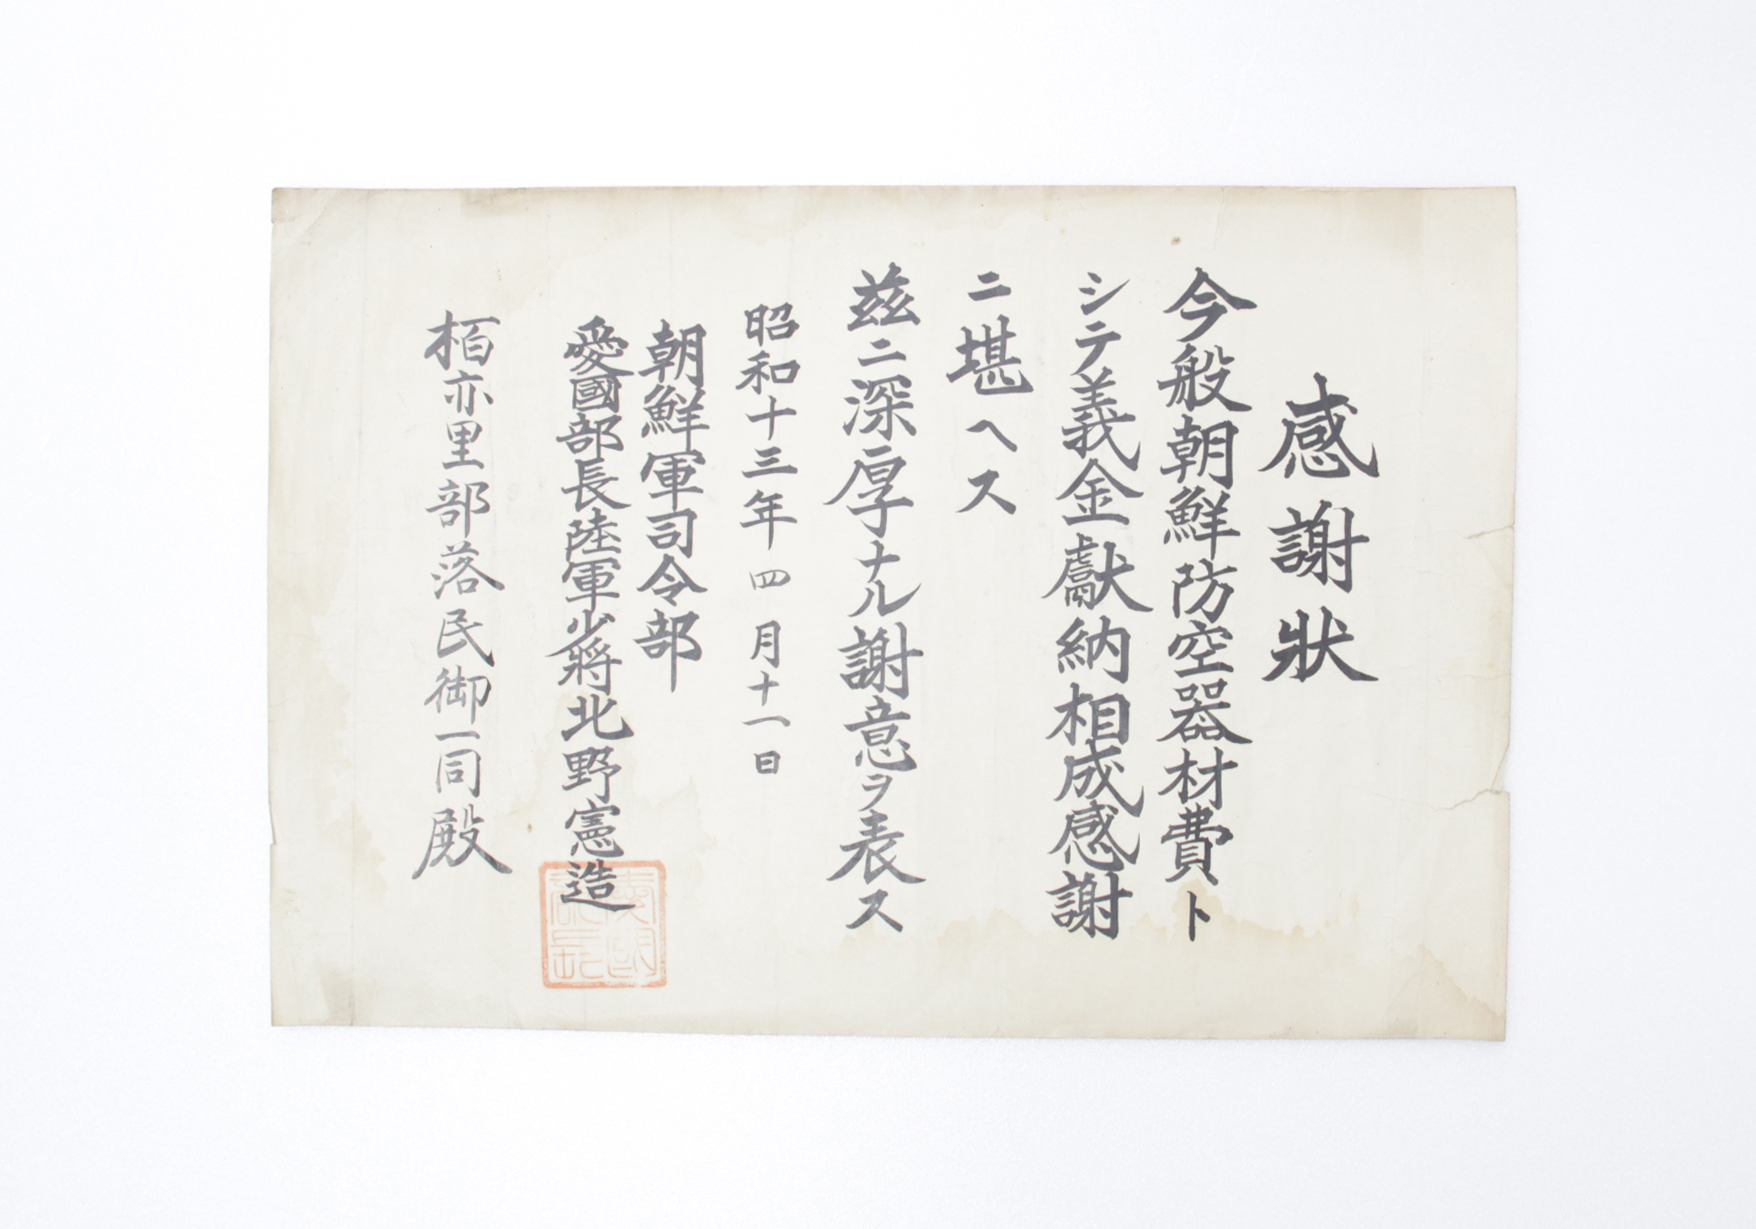 感謝狀
今般朝鮮防空器材費ト
シテ義金獻納相成感謝
ニ堪ヘス
茲ニ深厚ナル謝意ヲ表ス
昭和十三年四月十一日
朝鮮軍司令部
愛國部長陸軍少將北野憲造
栢亦里部落民御一同殿